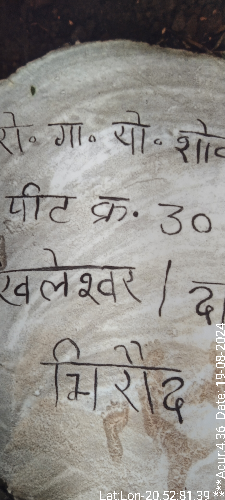 रो॰ गा॰ यो॰ शो
पीट क्र. 30
खलेश्वर / दा
भिरौद
Lat:Lon-20.52:81.39 ***Acur:4.36 Date:19-08-2024